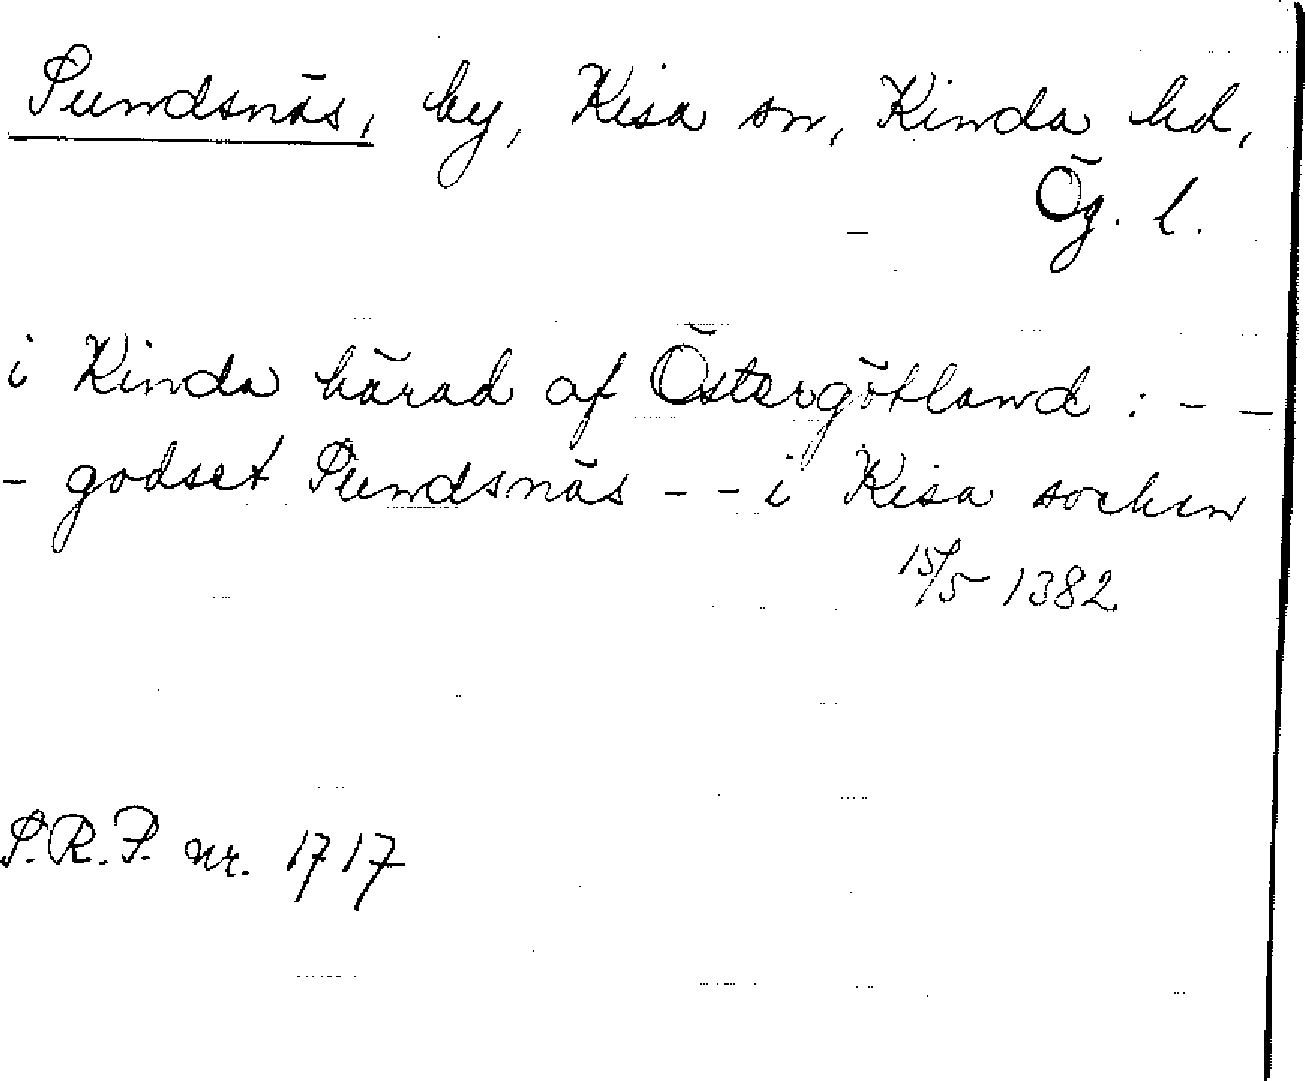 Sundsnäs, by, Kisa sn, Kinda hd,
Ög. l.
i Kinda härad af Östergötland : - -
- godset Sundsnäs - - i Kisa socken
15/5 1382
S.R.P. nr. 1717